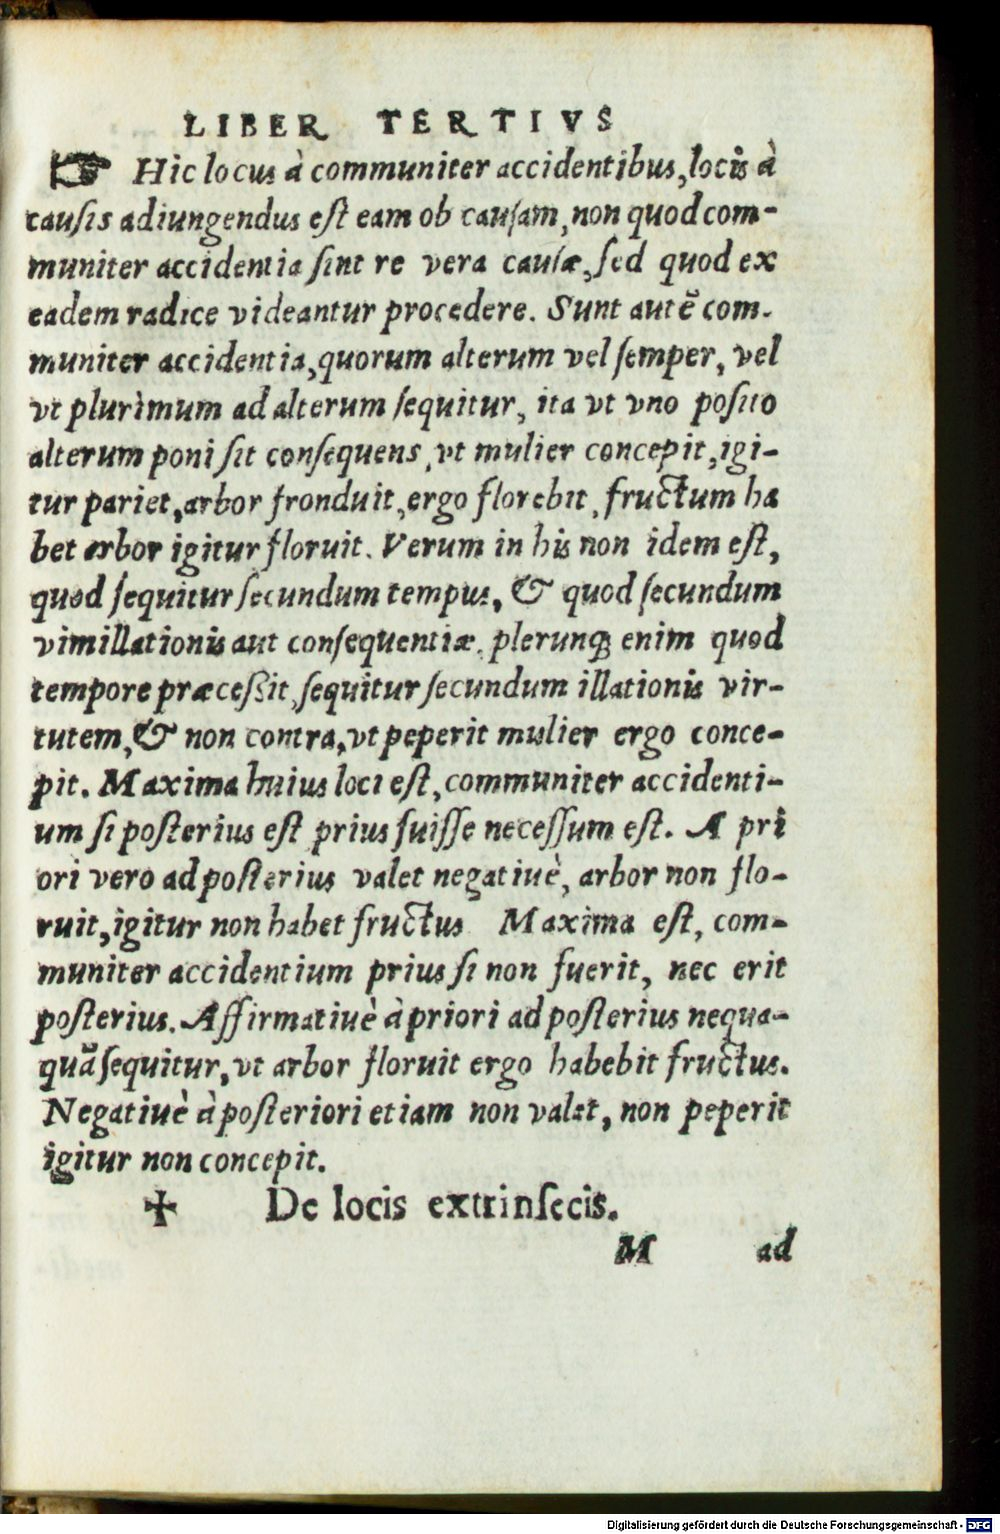 LIBER TERTIVS
☞ Hic locus à communiter accidentibus, locis à
causis adiungendus est eam ob causam, non quod com-
muniter accidentia sint re vera causæ, sed quod ex
eadem radice videantur procedere. Sunt autẽ com-
muniter accidentia, quorum alterum vel semper, vel
vt plurimum ad alterum sequitur, ita vt vno posito
alterum poni sit consequens, vt mulier concepit, igi-
tur pariet, arbor fronduit, ergo florebit, fructum ha
bet arbor igitur floruit. Verum in his non idem est,
quod sequitur secundum tempus, & quod secundum
vim illationis aut consequentiæ. plerunq; enim quod
tempore præceßit, sequitur secundum illationis vir-
tutem, & non contra, vt peperit mulier ergo conce-
pit. Maxima huius loci est, communiter accidenti-
um si posterius est prius fuisse necessum est. A pri
ori vero ad posterius valet negatiuè, arbor non flo-
ruit, igitur non habet fructus Maxima est, com-
muniter accidentium prius si non fuerit, nec erit
posterius. Affirmatiuè à priori ad posterius nequa-
quã sequitur, vt arbor floruit ergo habebit fructus.
Negatiuè à posteriori etiam non valet, non peperit
igitur non concepit.
✠ De locis extrinsecis.
M ad
Digitalisierung gefördert durch die Deutsche Forschungsgemeinschaft - DFG